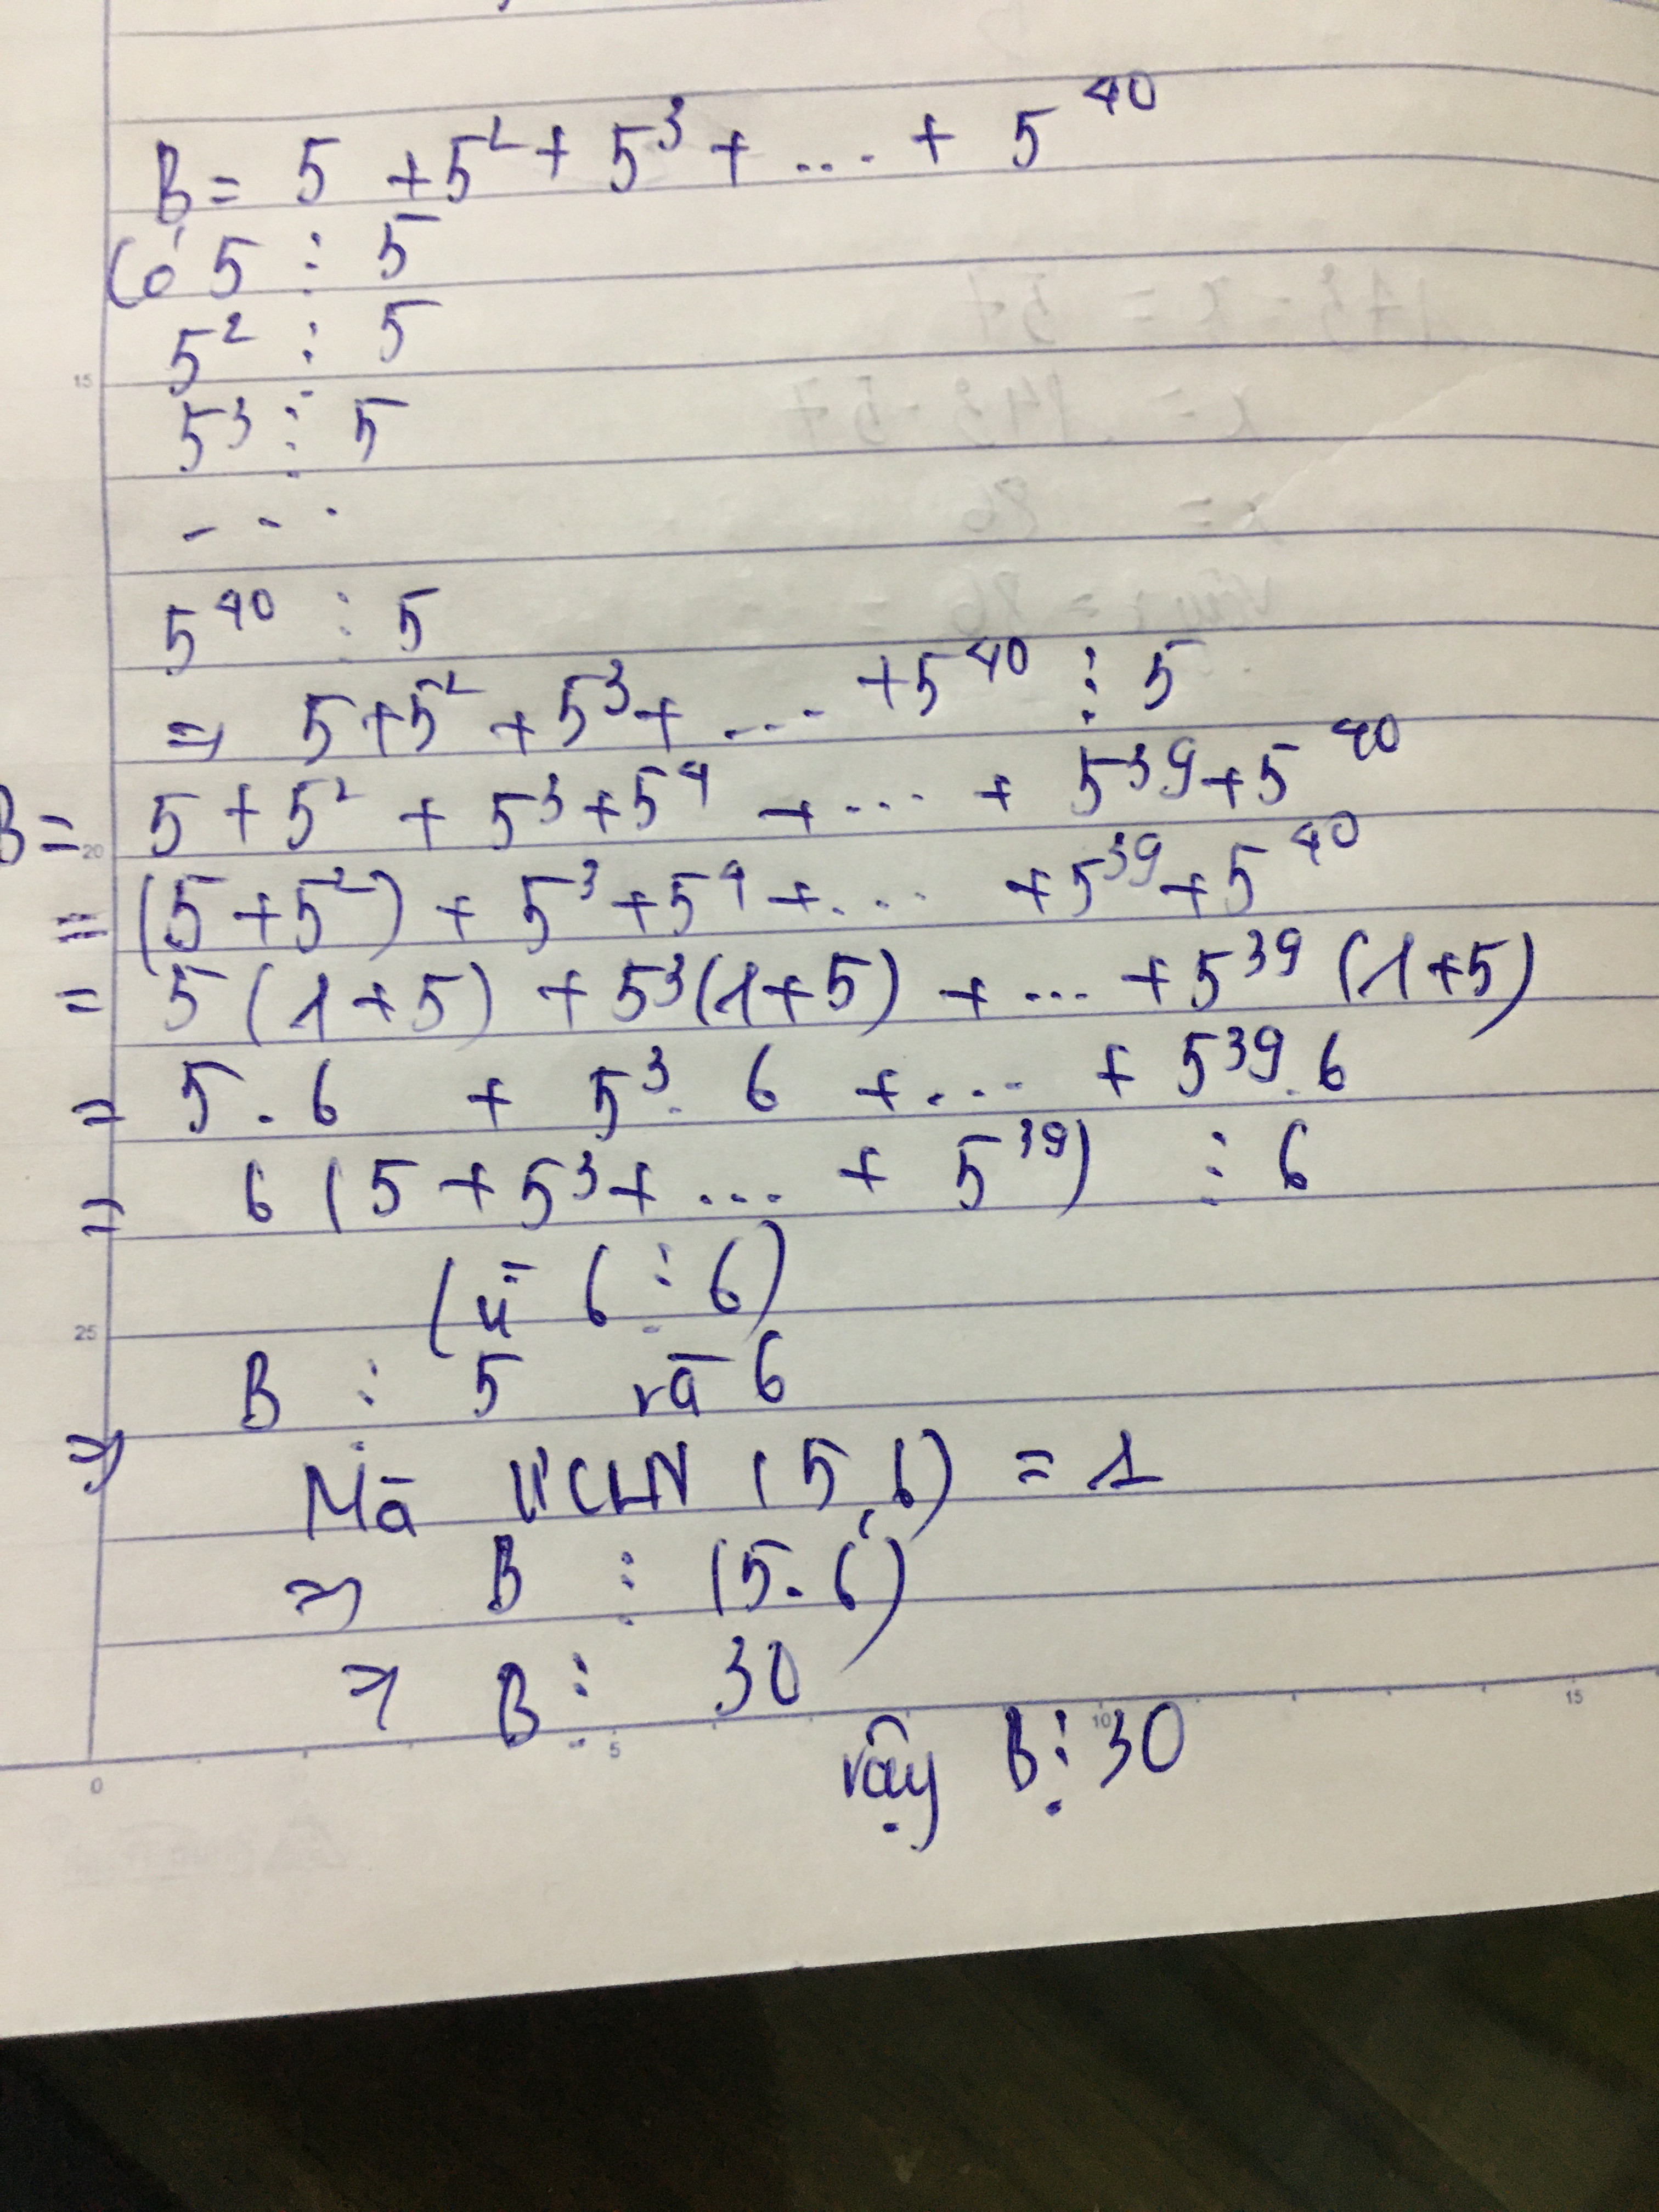 B = 5 + 5² + 5³ + ... + 5⁴⁰
Có 5 ⋮ 5
5² ⋮ 5
5³ ⋮ 5
...
5⁴⁰ ⋮ 5
⇒ 5 + 5² + 5³ + ... + 5⁴⁰ ⋮ 5
B = 5 + 5² + 5³ + 5⁴ + ... + 5³⁹ + 5⁴⁰
= (5 + 5²) + 5³ + 5⁴ + ... + 5³⁹ + 5⁴⁰
= 5 (1 + 5) + 5³ (1 + 5) + ... + 5³⁹ (1 + 5)
= 5 . 6 + 5³ . 6 + ... + 5³⁹ . 6
= 6 (5 + 5³ + ... + 5³⁹) ⋮ 6
(vì 6 ⋮ 6)
B ⋮ 5 và 6
⇒ Mà ƯCLN (5, 6) = 1
⇒ B ⋮ (5 . 6)
⇒ B ⋮ 30
vậy B ⋮ 30
15
20
25
0 5 10 15